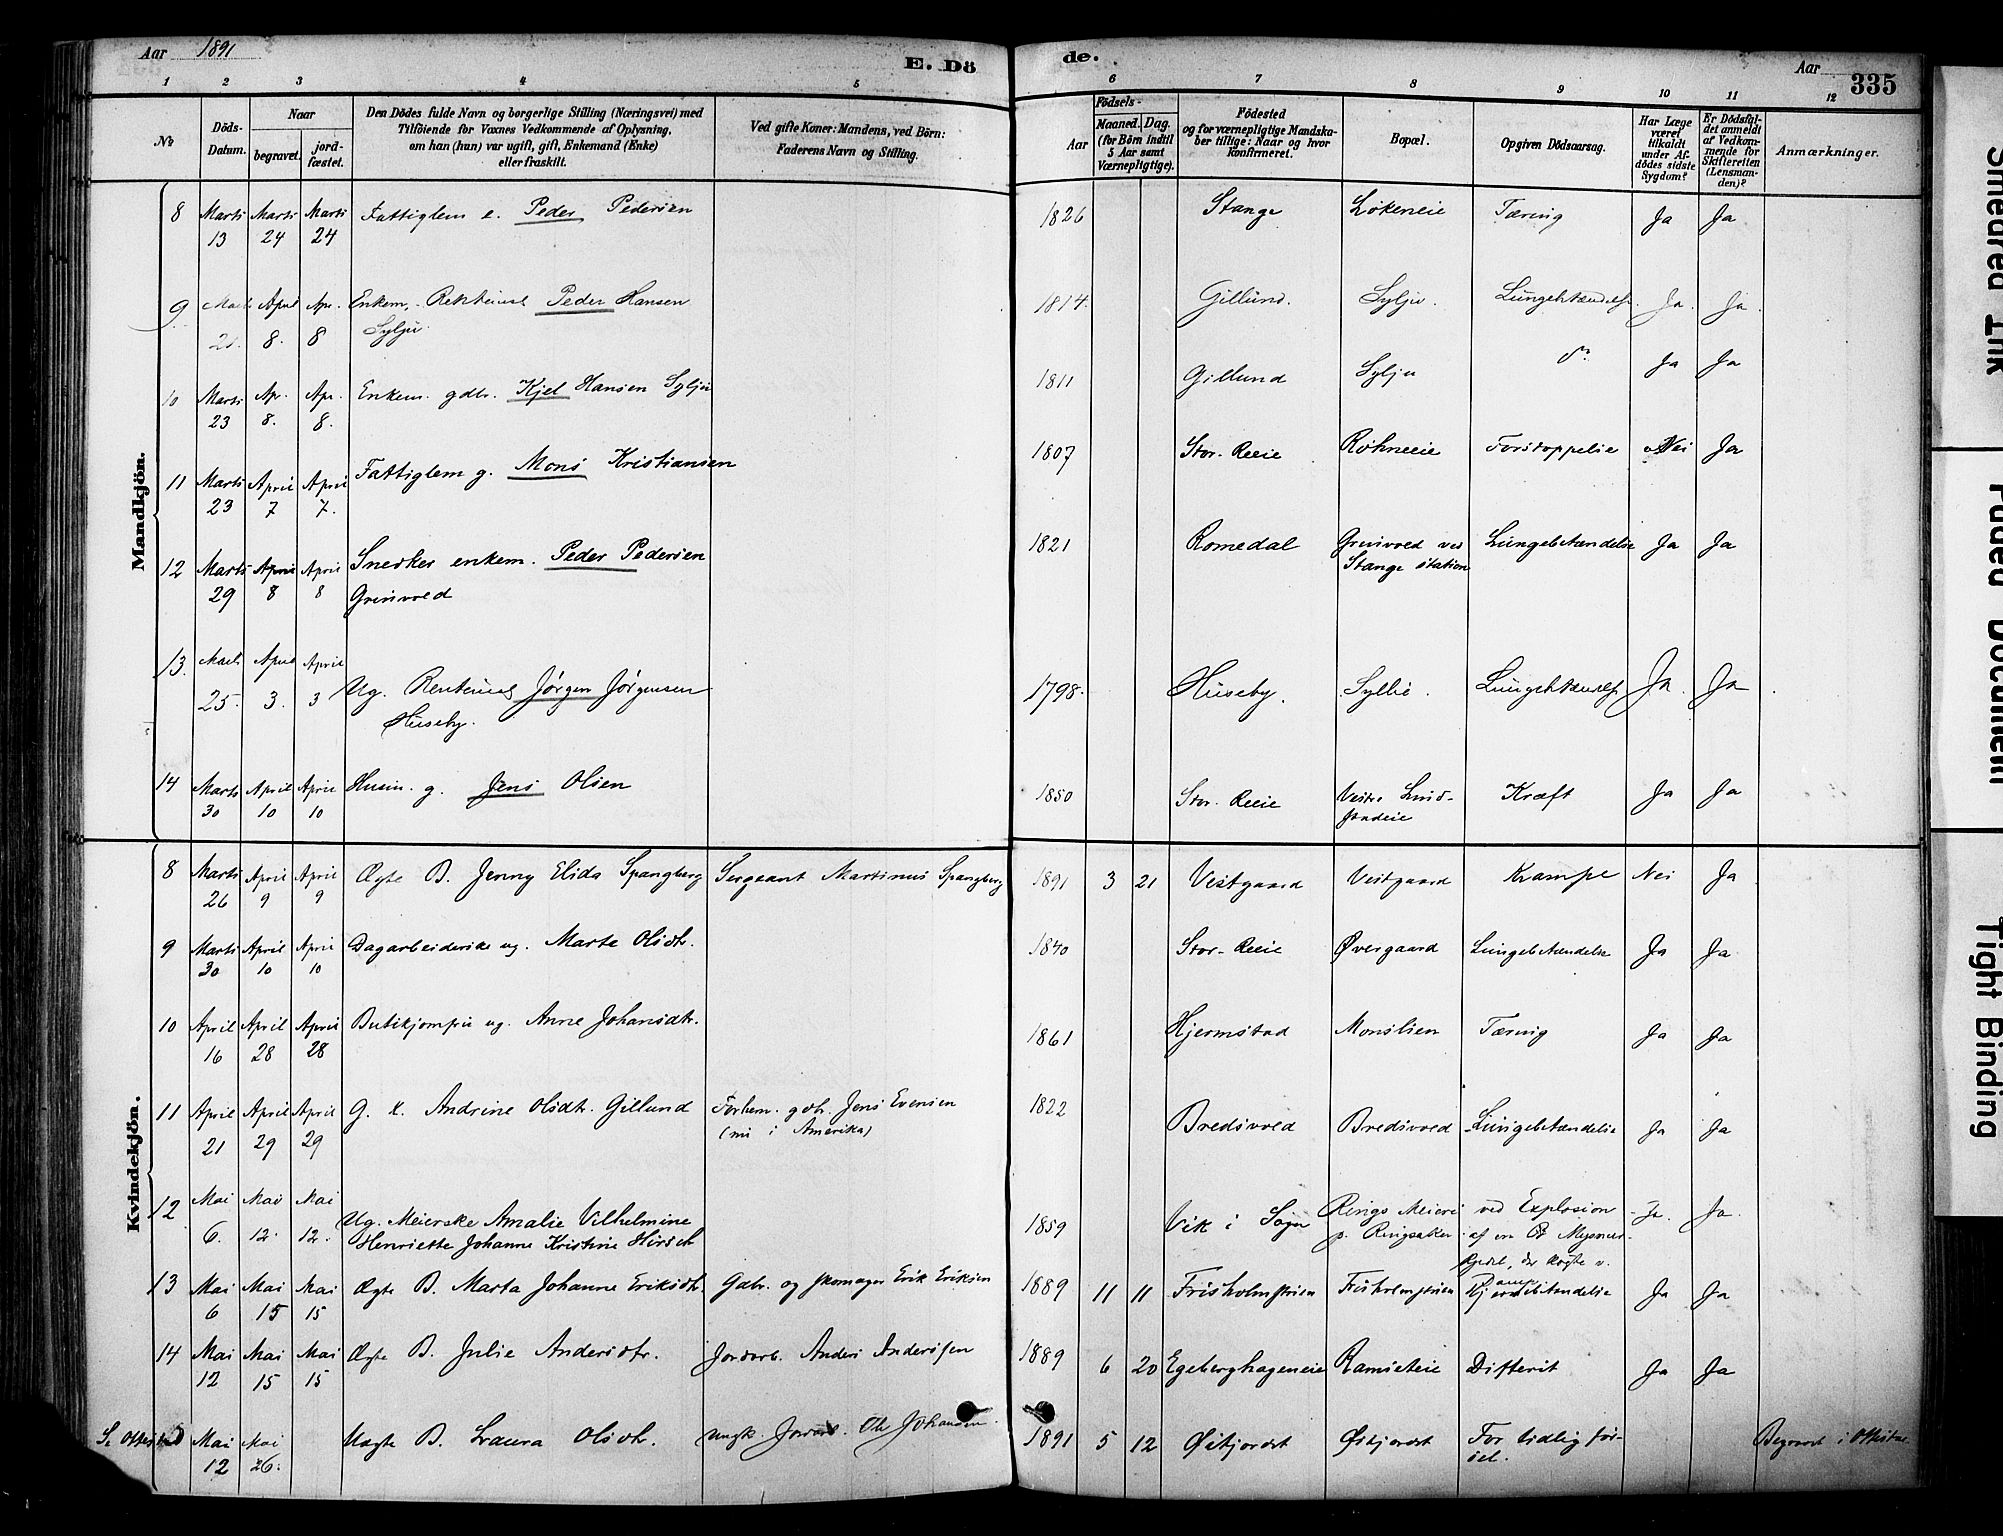 Aar 1891
E. Dö
de.
Aar
335
1 2 3 4 5 6 7 8 9 10 11 12
No
Döds-Datum.
Naar
begravet.
jord-fæstet.
Den Dödes fulde Navn og borgerlige Stilling (Næringsvei) med
Tilföiende for Voxnes Vedkommende af Oplysning,
om han (hun) var ugift, gift, Enkemand (Enke)
eller fraskilt.
Ved gifte Koner: Mandens, ved Börn:
Faderens Navn og Stilling.
Födsels-
Aar
Maaned. Dag.
(for Börn indtil
5 Aar samt
Værnepligtige).
Födested
og for værnepligtige Mandska-
ber tillige: Naar og hvor
Konfirmeret.
Bopæl.
Opgiven Dödsaarsag.
Har Læge
været
tilkaldt
under Af-
dödes sidste
Sygdom?
Er Dödsfal-
det anmeldt
af Vedkom-
mende for
Skifteretten
(Lensman-
den)?
Anmærkninger.
Mandkjön.
8 Marts 13 Marts 24 Marts 24 Fattiglem e. Peder Pedersen 1826 Stange Løkeneie Tæring Ja Ja
9 Marts April 8. Apr. 8 Enkem. Peder Hansen 1814. Gillund. Sylju. Lungebetændelse Ja. Ja.
Sylju.
10 Marts 23 Apr. 8. Apr. 8. Enkem. gdbr. Kjel Hansen Sylju 1811 Gillund Sylju do Ja Ja
11 Marts 23 April 7 April 7. Fattiglem g. Mons Kristiansen 1807 Stor-Reeie Røhneeie Forstoppelse Nei Ja
12 Marts 29 April 8 April 8 Snedker enkem. Peder Pedersen 1821 Romedal Grinvold ved Lungebetændelse Ja Ja
Grinvold Stange station
13. Marts 25. April 3. April 3 Ug. Jørgen Jørgensen 1798. Huseby. Syllie. Lungebetændelse Ja. Ja
Huseby.
14 Marts 30 April 10 April 10 Husm. g. Jens Olsen 1850 Stor-Reeie Vestre Lind- Kræft Ja Ja
Kvindekjön.
8 Marts 26 April 9 April 9 Ægte B. Jenny Elida Spangberg Sergeant Martinus Spangberg 1891 3 21 Vestgaard Vestgaard Krampe Nei Ja
9 Marts 30 April 10 April 10 Dagarbeiderske ug. Marte Olsdtr. 1840 Stor-Reeie Øvergaard Lungebetændelse Ja Ja
10 April 16 April 28 April 28 Butikjomfru ug. Anne Johansdtr. 1861 Hjermstad Monslien Tæring Ja Ja
11 April 21 April 29 April 29 G. k. Andrine Olsdtr. Gillund Forhem. gdbr. Jens Evensen 1822 Bredsvold Bredsvold Lungebetændelse Ja Ja
(nu i Amerika)
12 Mai 6. Mai 12. Mai 12. Ug. Meierske Amalie Vilhelmine 1859 Vik i Sogn Rings Meieri ved Explosion Ja. Ja.
Henriette Johanne Kristine Hirsch p. Ringsaker af en
13 Mai 6 Mai 15 Mai 15 Ægte B. Marta Johanne Eriksdtr. Gdbr. og skomager Erik Eriksen 1889 11 11 Frisholmstuen Frisholmstuen Hjernebetændelse Ja Ja
14 Mai 12 Mai 15 Mai 15 Ægte B. Julie Andersdtr. Jordarb. Anders Andersen 1889 6 20 Egeberghageneie Ramseteie Difterit Ja Ja
Mai 12 Mai 26. Uægte B. Laura Olsdtr. Ungk. Jordarb. Ole Johansen. 1891 5 12 Østjordet Østjordet For tidlig fød- Begravet i Ottestad
sel.
Smeared Ink
Faded Document
Tight Binding